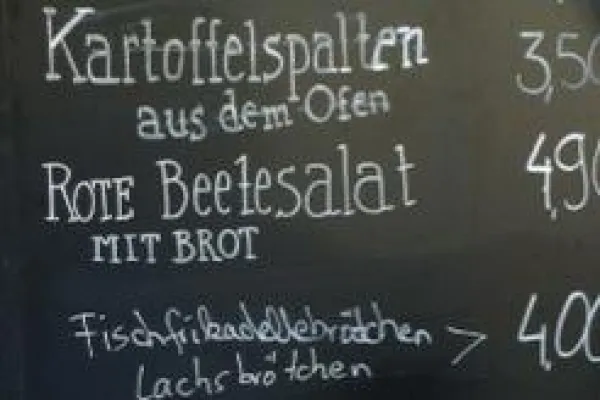 Kartoffelspalten 3,50
aus dem Ofen
ROTE Beetesalat 4,90
MIT BROT
Fischfrikadellebrötchen > 4,00
Lachsbrötchen